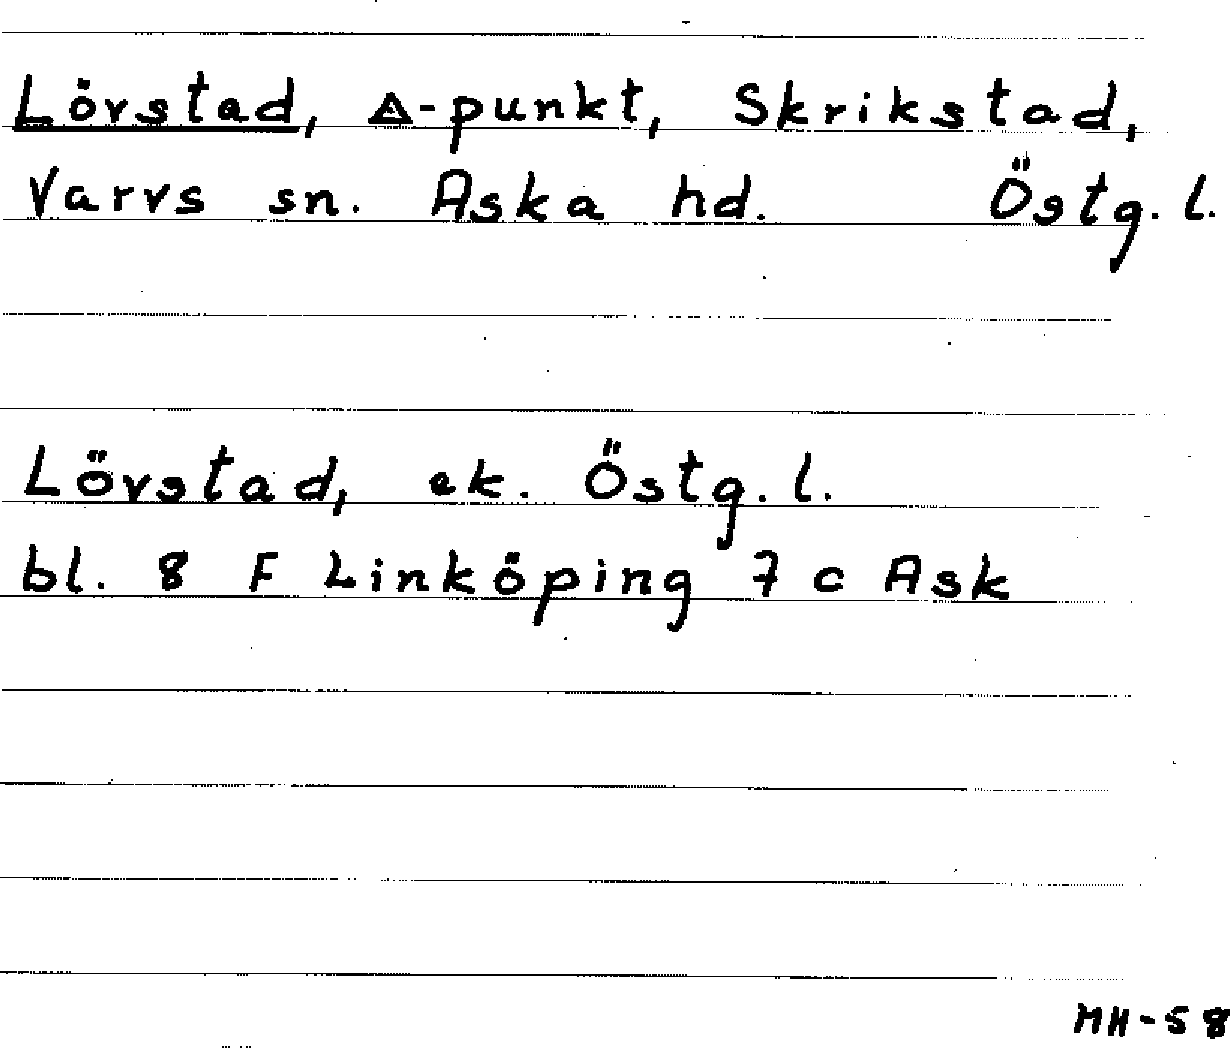 Lövstad, Δ-punkt, Skrikstad,
Varvs sn. Aska hd. Östg. l.
Lövstad, ek. Östg. l.
bl. 8 F Linköping 7 c Ask
MH-58